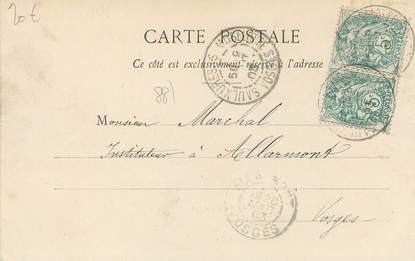 20 €
CARTE POSTALE
Ce côté est exclusivement réservé à l'adresse
88
Monsieur Marchal
Instituteur à Allarmont
Vosges
VOSGES
5
5